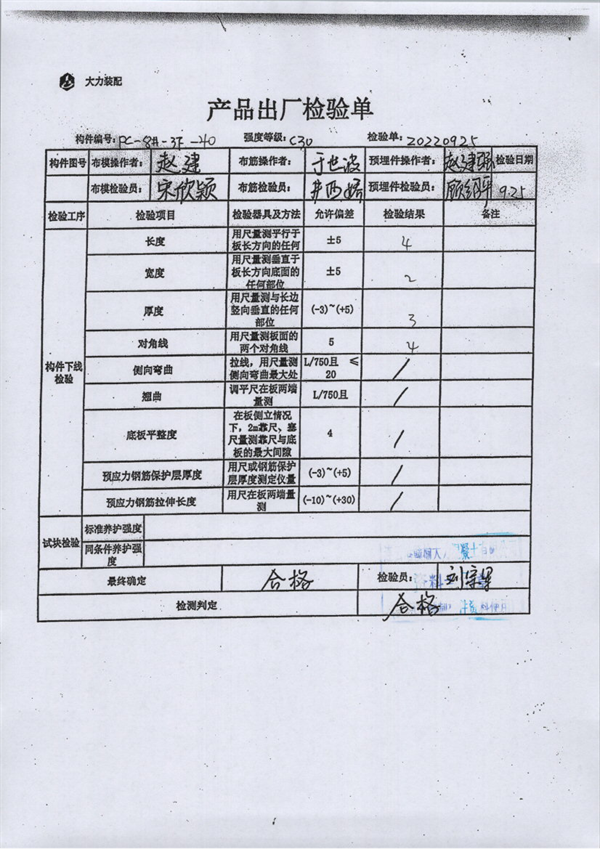 大力装配
产品出厂检验单
构件编号: PC-8#-3F-40 强度等级: C30 检验单: 20220925
构件图号 布模操作者: 赵建 布筋操作者: 于世波 预埋件操作者: 赵建 检验日期
布模检验员: 宋欣颖 布筋检验员: 预埋件检验员: 9.25
检验工序 检验项目 检验器具及方法 允许偏差 检验结果 备注
构件下线检验
长度 用尺量测平行于板长方向的任何 ±5 4
宽度 用尺量测垂直于板长方向底面的任何部位 ±5 2
厚度 用尺量测与长边竖向垂直的任何部位 (-3)~(+5) 3
对角线 用尺量测板面的两个对角线 5 4
侧向弯曲 拉线，用尺量测侧向弯曲最大处 L/750且 ≤20 /
翘曲 调平尺在板两端量测 L/750且 /
底板平整度 在板侧立情况下，2m靠尺、塞尺量测靠尺与底板的最大间隙 4 /
预应力钢筋保护层厚度 用尺或钢筋保护层厚度测定仪量 (-3)~(+5) /
预应力钢筋拉伸长度 用尺在板两端量测 (-10)~(+30) /
试块检验 标准养护强度
同条件养护强度
最终确定 合格 检验员: 刘宗
检测判定 合格